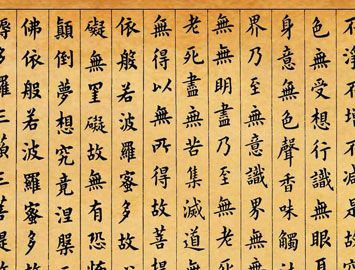 不淨不增不減是故
色無受想行識無眼
身意無色聲香味觸法
界乃至無意識界無
無無明盡乃至無老
老死盡無苦集滅道無
無得以無所得故菩
依般若波羅蜜多故
礙無罣礙故無有恐怖
顛倒夢想究竟涅槃
佛依般若波羅蜜多故
耨多羅三藐三菩提故